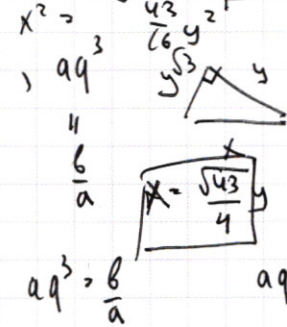 x² = 43/16 y²
) aq³
y√3 y
=
b/a
x
x = √43/4 y
aq³ = b/a aq